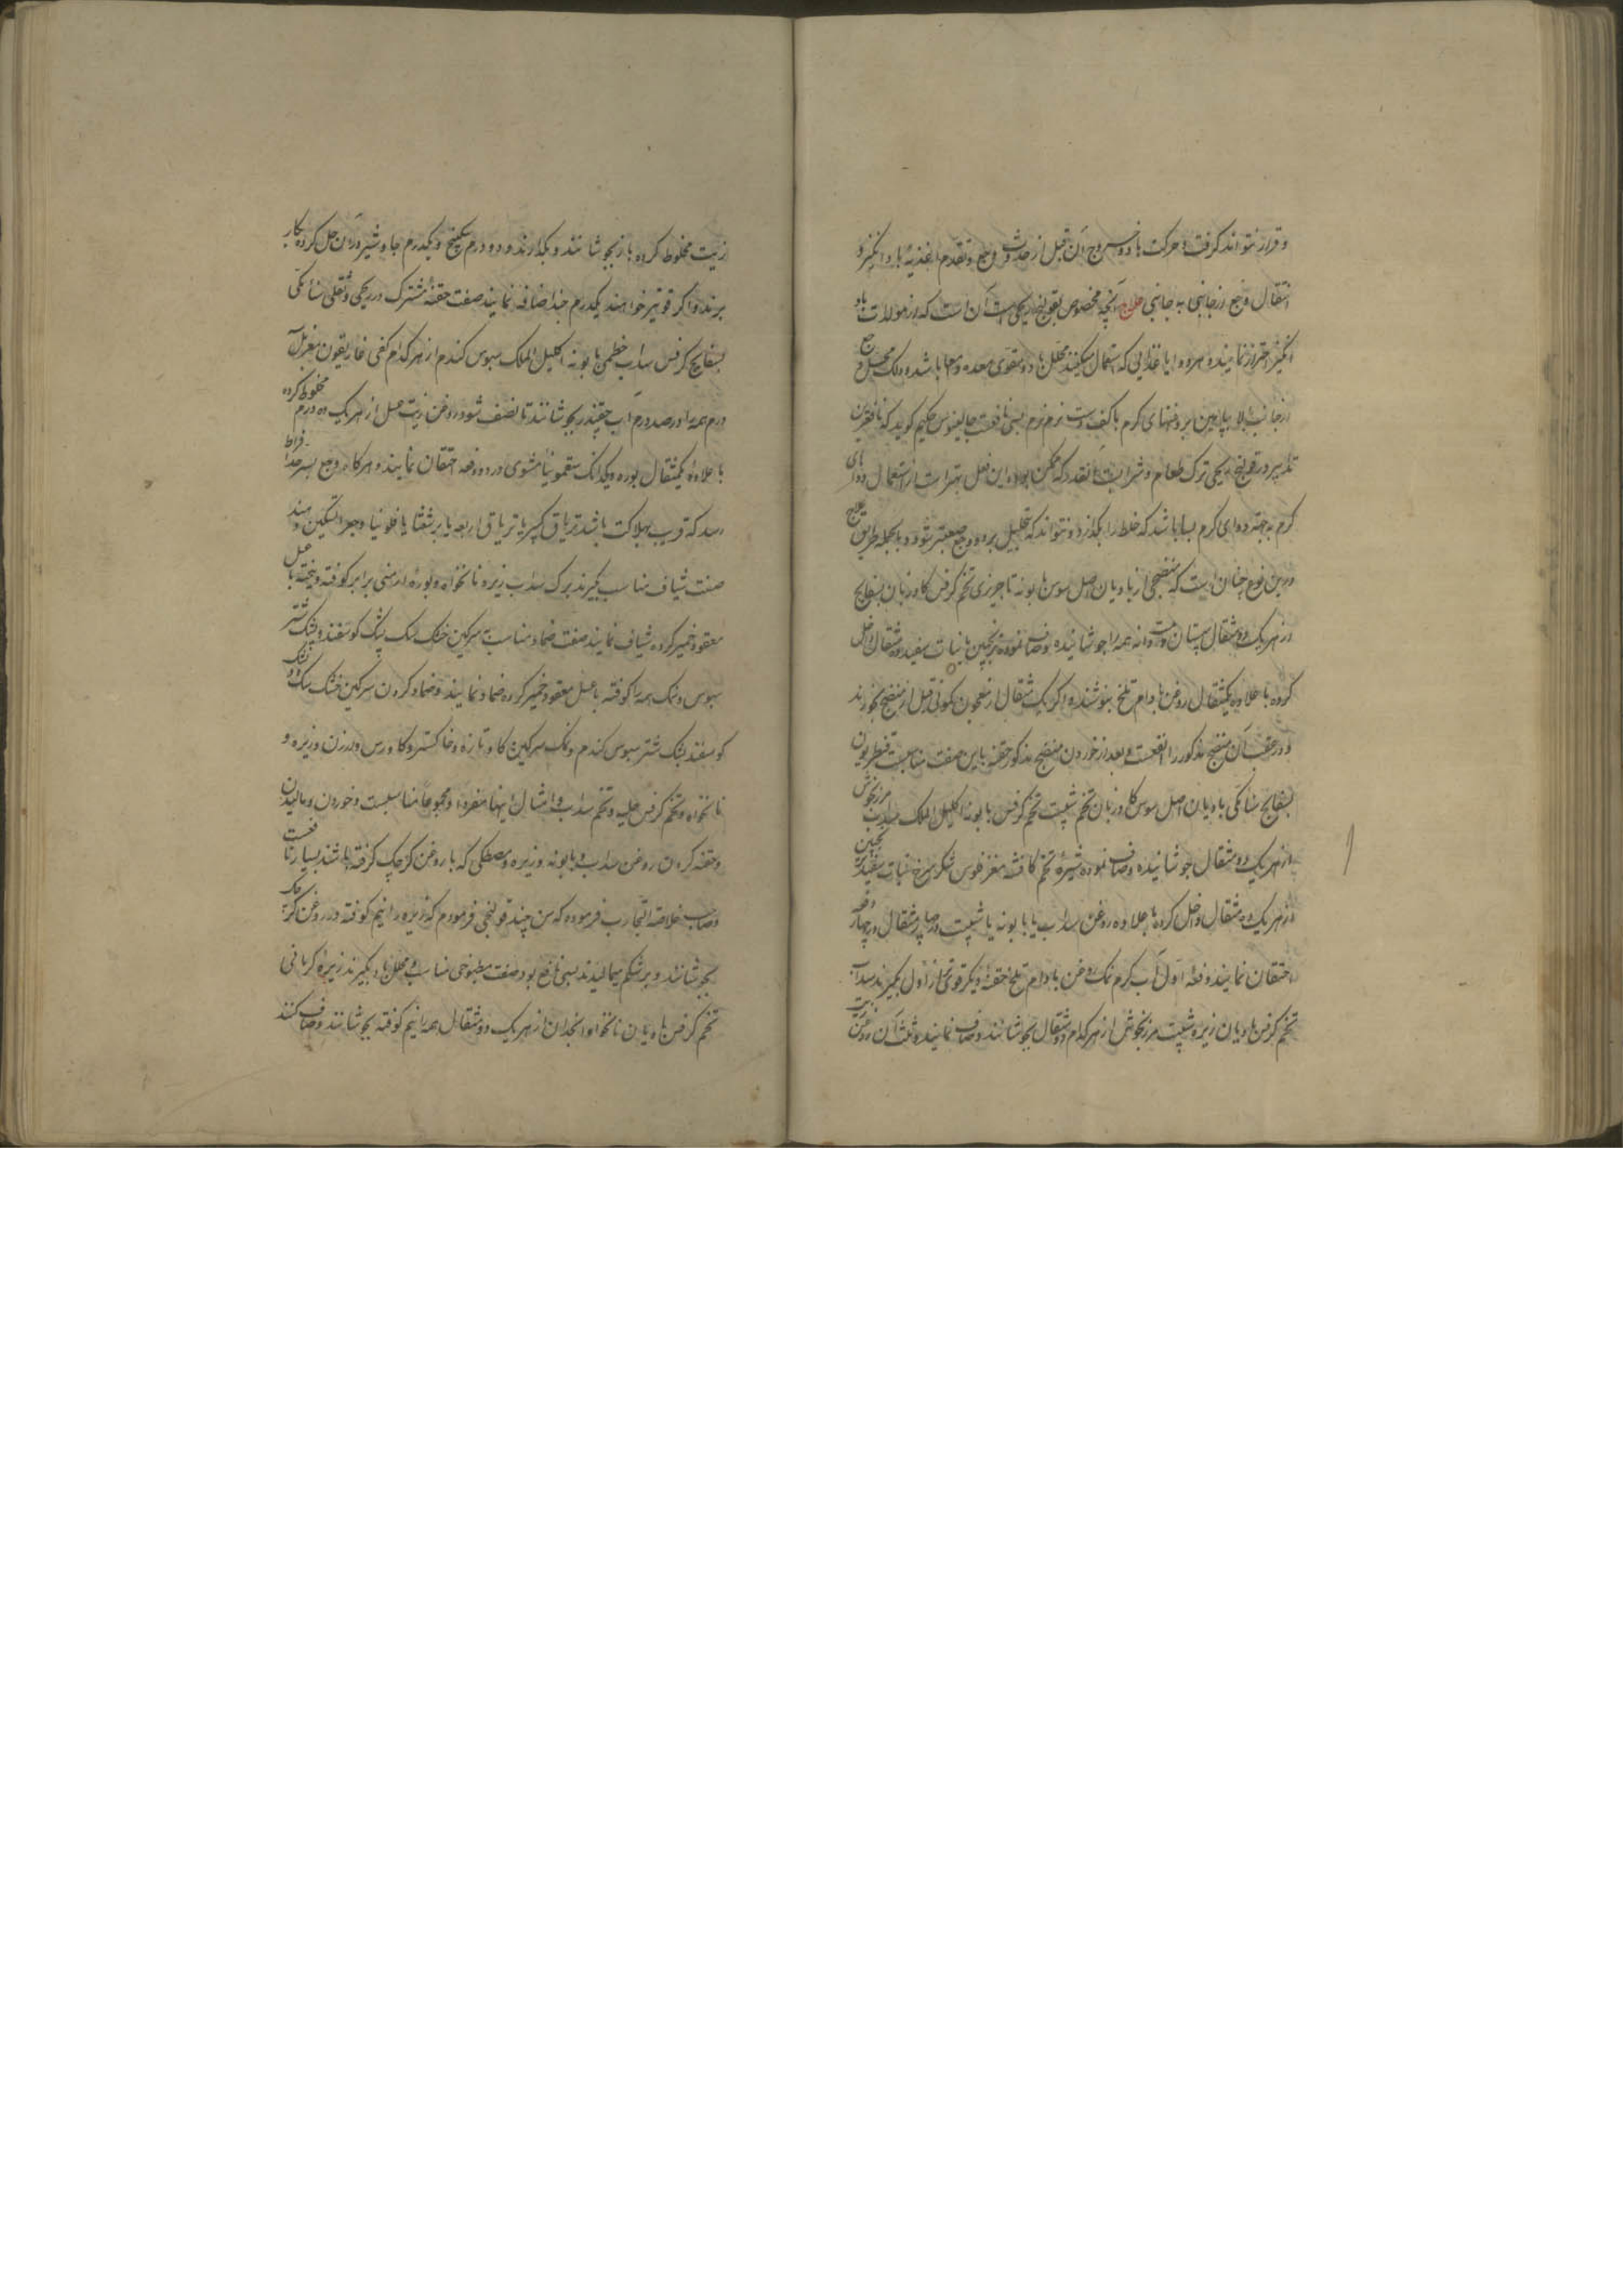 و قرار نتواند گرفت و حرکت باد و خروج آن قبل از حدوث وجع و تقدم اغذیهٔ باد انگیز و
انتقال وجع از جانبی به جانبی علاج آنچه مخصوص بقولنج ریحی است آن است که از مولدات باد
انگیز احتراز نمایند و هر دوا یا غذایی که استعمال میکنند محلل باد و مقوی معده و امعا باشد و دلک محل وجع
از جانب بالا بپایین بروغنهای گرم با کف دست نرم نرم بسی نافعست جالینوس حکیم گوید که نافعترین
تدبیر در قولنج ریحی ترک طعام و شرابست آنقدر که ممکن بود و این فعل بهتر است از استعمال دواهای
گرم به جهته دوای گرم بسا باشد که خلط را بگدازد و نتواند که تحلیل برد و وجع صعبتر شود و بالجمله طریق علاج
درین نوع چنان است که منضجی از بادیان اصل سوس بابونه تاجریزی تخم کرفس گاوزبان بسفایج
از هر یک دو مثقال سپستان دانه همه را جوشانیده و صاف نموده ترنجبین یا نبات سفید ده مثقال داخل
کرده با علاوه یکمثقال روغن بادام تلخ بنوشند و اگر یک مثقال از معجون کمونی قبل از منضج بخورند
و در عقب آن منضج مذکور را انفعست و بعد از خوردن منضج مذکور حقنه باین صفت مناسبست قنطریون
بسفایج سنا مکی بادیان اصل سوس گاوزبان تخم شبت تخم کرفس بابونه اکلیل الملک سداب مرزنجوش
از هر یک دو مثقال جوشانیده و صاف نموده شیرهٔ تخم کافشه مغز فلوس شکر سرخ نبات سفید ترنجبین
از هر یک ده مثقال داخل کرده با علاوه روغن سداب یا بابونه یا شبت چهار مثقال در چهار دفعه
احتقان نمایند دفعهٔ اول آب گرم نمک روغن بادام تلخ حقنهٔ دیگر قوی تر از اول بگیرند سداب
تخم کرفس بادیان زیره شبت مرزنجوش از هر کدام دو مثقال بجوشانند و صاف نمایند و ثلث آن روغن زیت
زیت مخلوط کرده باز بجوشانند و بگذارند و دو درم سکبینج و یکدرم جاوشیر در آن حل کرده بکار
برند و اگر قویتر خواهند یکدرم جند اضافه نمایند صفت حقنهٔ مشترک در ریحی و ثفلی سنا مکی
بسفایج کرفس سداب خطمی بابونه اکلیل الملک سبوس گندم از هر کدام کفی غاریقون مغربل
درم همه را در صد درم آب چقندر بجوشانند تا بنصف شود روغن زیت عسل از هر یک ده درم مخلوط کرده
با علاوهٔ یکمثقال بوره و یکدانگ سقمونیا مشوی در دو دفعه احتقان نمایند و هر گاه وجع بسرحد افراط
رسد که قریب بهلاکت باشد تریاق کبیر یا تریاق اربعه یا برشعثا یا فلونیا وجع را تسکین دهند
صفت شیاف مناسب بگیرند برگ سداب زیره نانخواه و بورهٔ ارمنی برابر کوفته و بیخته با عسل
معقود خمیر کرده شیاف نمایند صفت ضماد مناسب سرگین خشک سگ پشک گوسفند و پشک شتر
سبوس و نمک همه را کوفته با عسل معقود خمیر کرده ضماد نمایند و ضماد کردن سرگین خشک سگ و پشک
گوسفند پشک شتر سبوس گندم و نمک سرگین گاو تازه و خاکستر و گاورس و ارزن و زیره و
نانخواه و تخم کرفس حلبه و تخم سداب و امثال اینها منفرداً و مجموعاً مناسبست و خوردن و مالیدن
و حقنه کردن روغن سداب و بابونه و زیره و مصطکی که با روغن کرچک گرفته باشند بسیار نافعست
و صاحب خلاصة التجارب فرموده که من چند قولنجی فرمودم که زیره را نیم کوفته در روغن کرچک
بجوشانند و بر شکم میمالیدند بسی نافع بود صفت مطبوخی مناسب و محلل باد بگیرند زیرهٔ کرمانی
تخم کرفس بادیان نانخواه انجدان از هر یک دو مثقال همه را نیم کوفته بجوشانند و صاف کنند